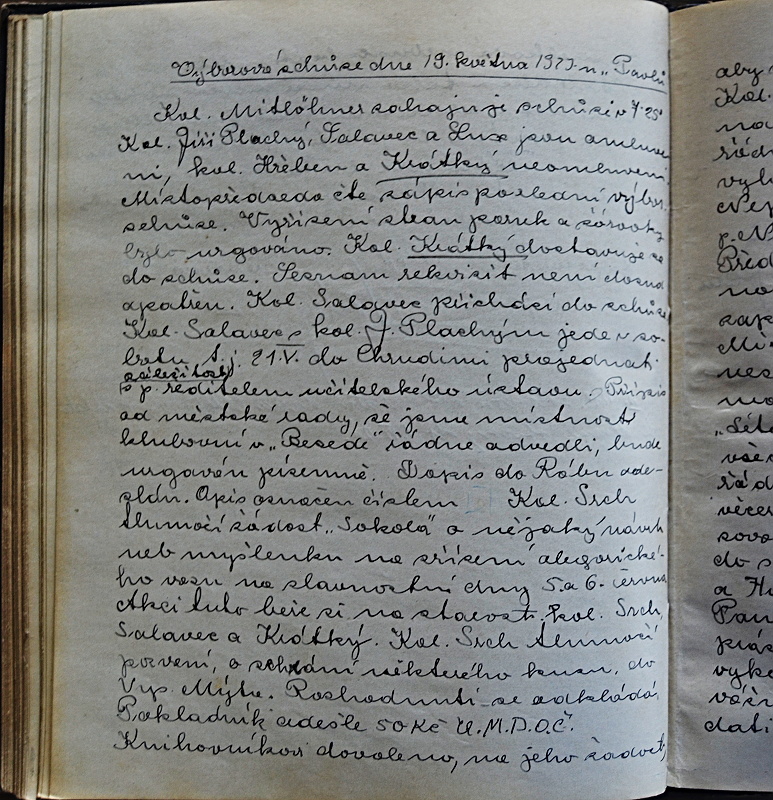 Výborová schůze dne 19. května 1923 u „Pavlů
Kol. Mitlöhner zahajuje schůzi v 7.25'
Kol. Jiří Plachý, Salavec a Hux jsou omluve-
ni, kol. Hřeben a Krátký neomluveni.
Místopředseda čte zápis poslední výbor.
schůze. Vyřízení stran porok a
bylo urgováno. Kol. Krátký dostavuje se
do schůze. Seznam rekvisit není dosud
opatřen. Kol. Salavec přichází do schůze
Kol. Salavec s kol. J. Plachým jede v so-
botu t. j. 21.V. do Chrudimi projednati
záležitosti
s p. ředitelem učitelského ústavu. Přípis
od městské rady, že jsme místnost
klubovní v „Besedě" řádně odvedli, bude
urgován písemně. Dopis do Rábu ode-
slán. Opis označen číslem Kol. Srch
tlumočí žádost „Sokola" o nějaký návrh
neb myšlenku na zřízení alegorické-
ho vozu na slavnostní dny 5. a 6. června
Akci tuto béře si na starost kol. Srch,
Salavec a Krátký. Kol. Srch tlumočí
pozvení, o sehrání některého kusu, do
Vys. Mýta. Rozhodnutí se odkládá.
Pokladník odešle 50 Kč Ú.M.D.O.Č.
Knihovníkovi dovoleno, na jeho žádost,
aby
Kol.
na
řád
vyk
p.
Před
no
záp
Mí
nes
„Léta
vše
řád
večer
do s
a H
Pan
vyko
dati